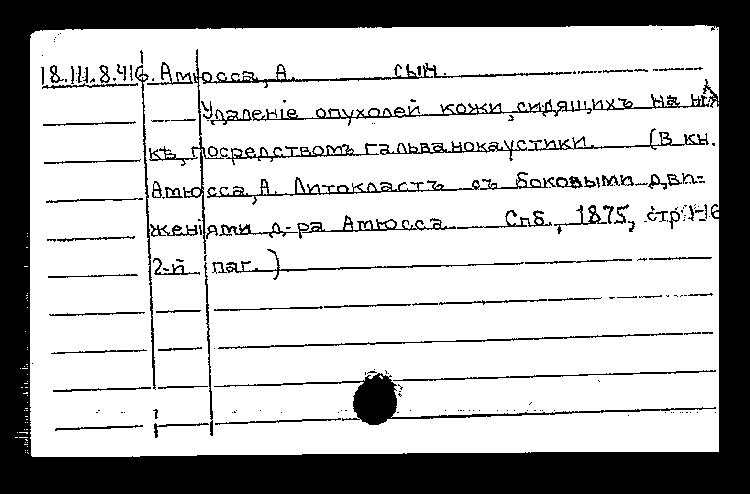 18.III.8.416. Амюсса, А. сын.
Удаленіе опухолей кожи, сидящихъ на нож
кѣ, посредствомъ гальванокаустики. (В кн.
Амюсса, А. Литокластъ съ боковыми дви-
женіями д-ра Амюсса Спб., 1875, стр. 1-16
2-й паг.)